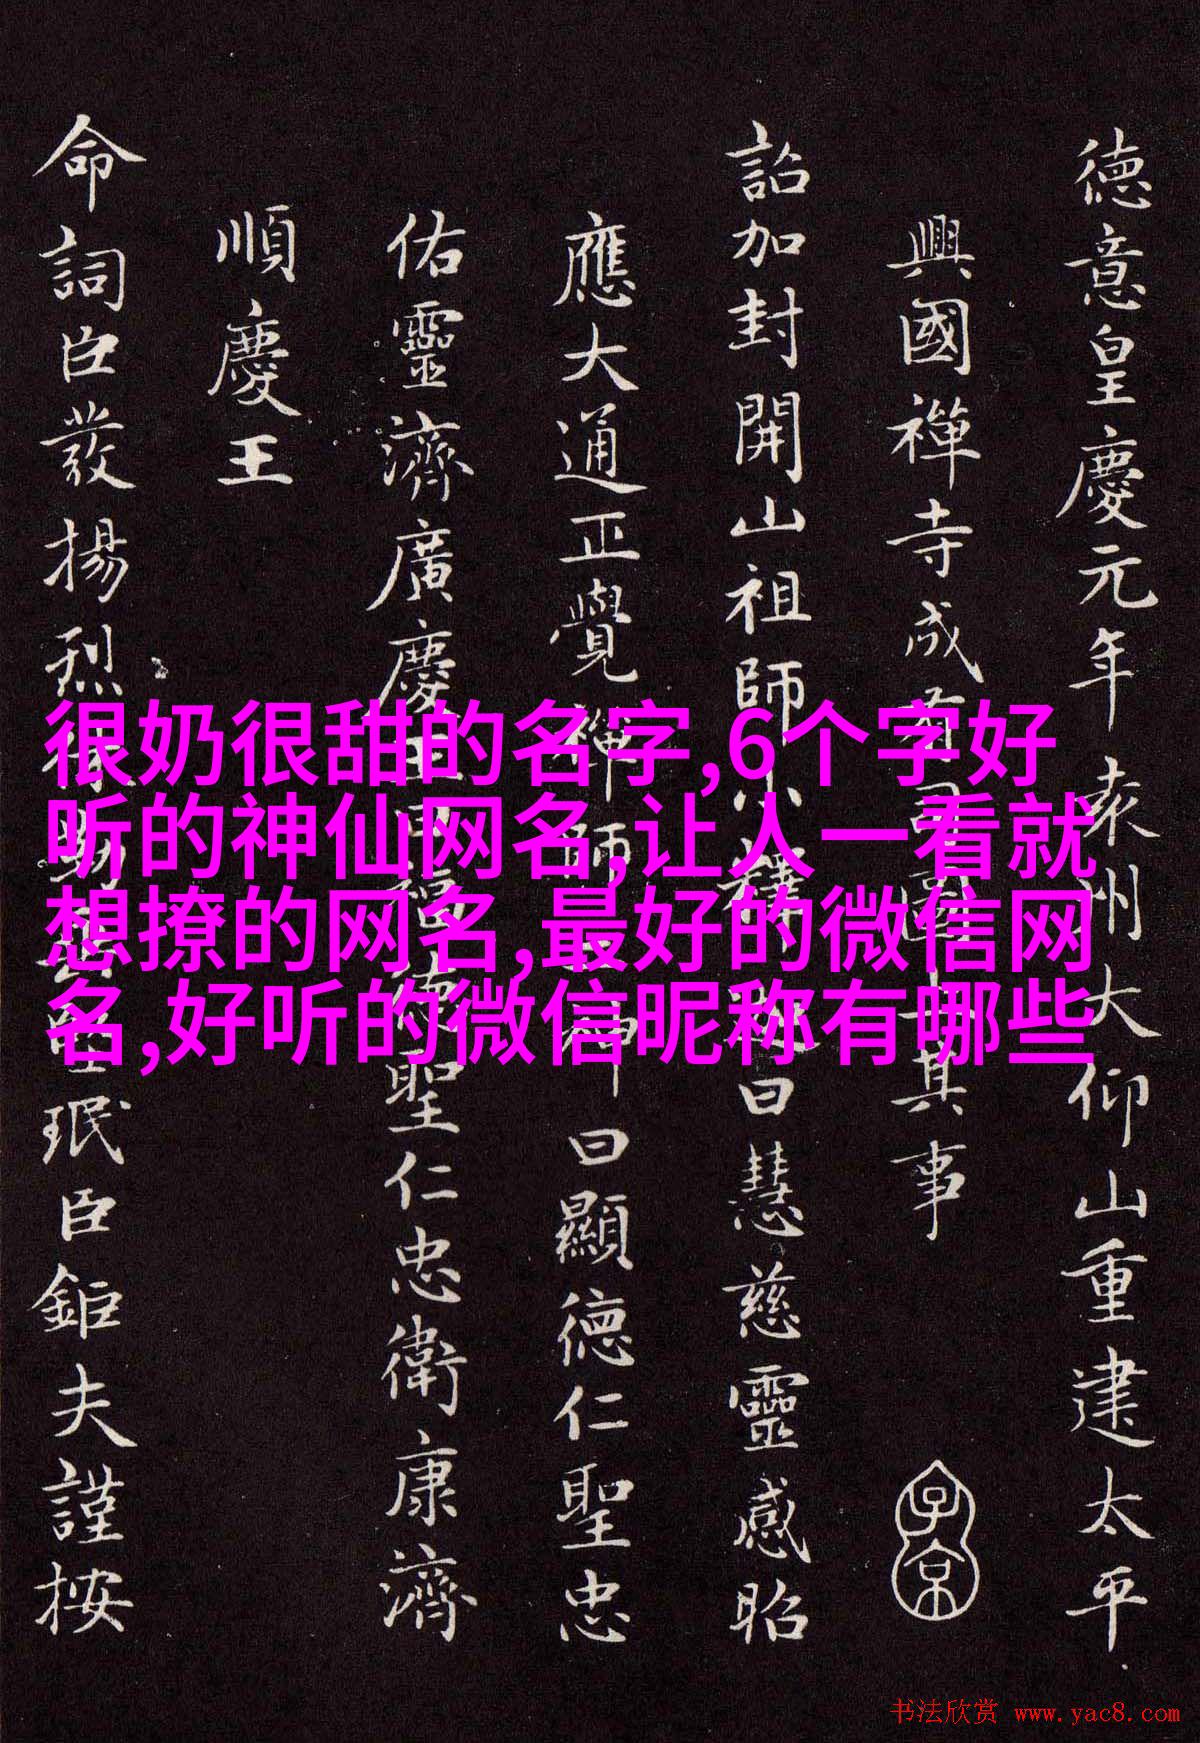 德意皇慶元年袁州大仰山重建太平
興國禪寺成有司圖上其事
詔加封開山祖師小釋迦曰慧慈靈感昭
應大通正覺禪師二神曰顯德仁聖忠
佑靈濟廣慶王曰福德聖仁忠衛康濟
順慶王
命詞臣發揚烈
珉臣鉅夫謹按
很奶很甜的名字,6个字好
听的神仙网名,让人一看就
想撩的网名,最好的微信网
名,好听的微信昵称有哪些
书法欣赏 www.yac8.com